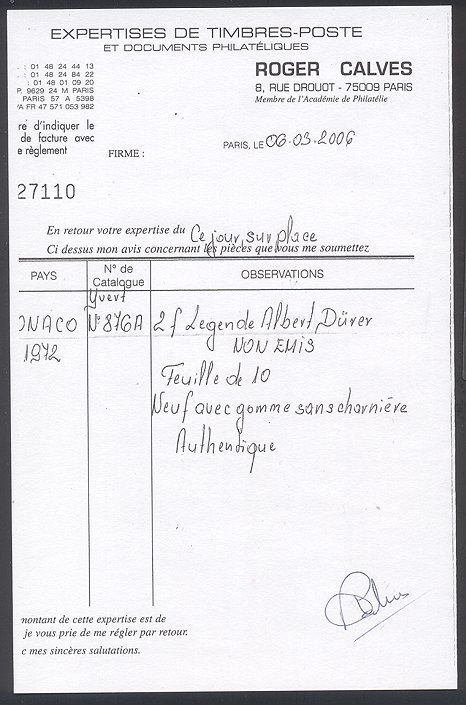 EXPERTISES DE TIMBRES-POSTE
ET DOCUMENTS PHILATÉLIQUES
: 01 48 24 44 13
: 01 48 24 84 22
: 01 48 01 09 20
P. 9629 24 M PARIS
PARIS 57 A 5398
/A FR 47 571 053 982
ROGER CALVES
8, RUE DROUOT - 75009 PARIS
Membre de l'Académie de Philatélie
re d'indiquer le
de facture avec
e règlement
FIRME :
PARIS, LE 06.03.2006
27110
En retour votre expertise du Ce jour, sur place
Ci dessus mon avis concernant les pièces que vous me soumettez
PAYS
N° de
Catalogue
OBSERVATIONS
Yvert
ONACO N°876A 2 f Legende Albert Dürer
1972 NON EMIS
Feuille de 10
Neuf avec gomme sans charnière
Authentique
montant de cette expertise est de
je vous prie de me régler par retour.
c mes sincères salutations.